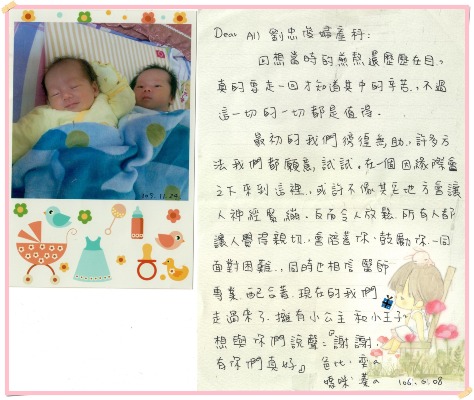 105.11.24
Dear All 劉忠俊婦產科:
回想當時的煎熬還歷歷在目,
真的要走一回才知道其中的辛苦,不過
這一切的一切都是值得.
最初的我們徬徨無助,許多方
法我們都願意試試,在一個因緣際會
之下來到這裡,或許不像其它地方會讓
人神經緊繃,反而令人放鬆.所有人都
讓人覺得親切.會陪著你、鼓勵你.一同
面對困難.,同時也相信醫師
專業、配合著.現在的我們
走過來了.擁有小公主 和小王子
想與你們說聲:『謝謝,
有你們真好』
106.6.08